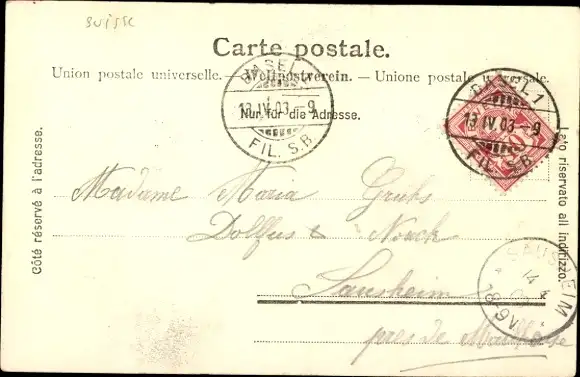 SUISSE
Carte postale.
Union postale universelle. — Weltpostverein. — Unione postale universale.
Nur für die Adresse.
Côté réservé à l'adresse.
Lato riservato all indirizzo.
BASEL 1
13.IV.03.–9
FIL. S.B.
BASEL 1
13.IV.03.–9
FIL. S.B.
10
Madame Maria
Dollfus & Noack
Sausheim
près de Mulhouse
SAUSHEIM
14 4
8-9V